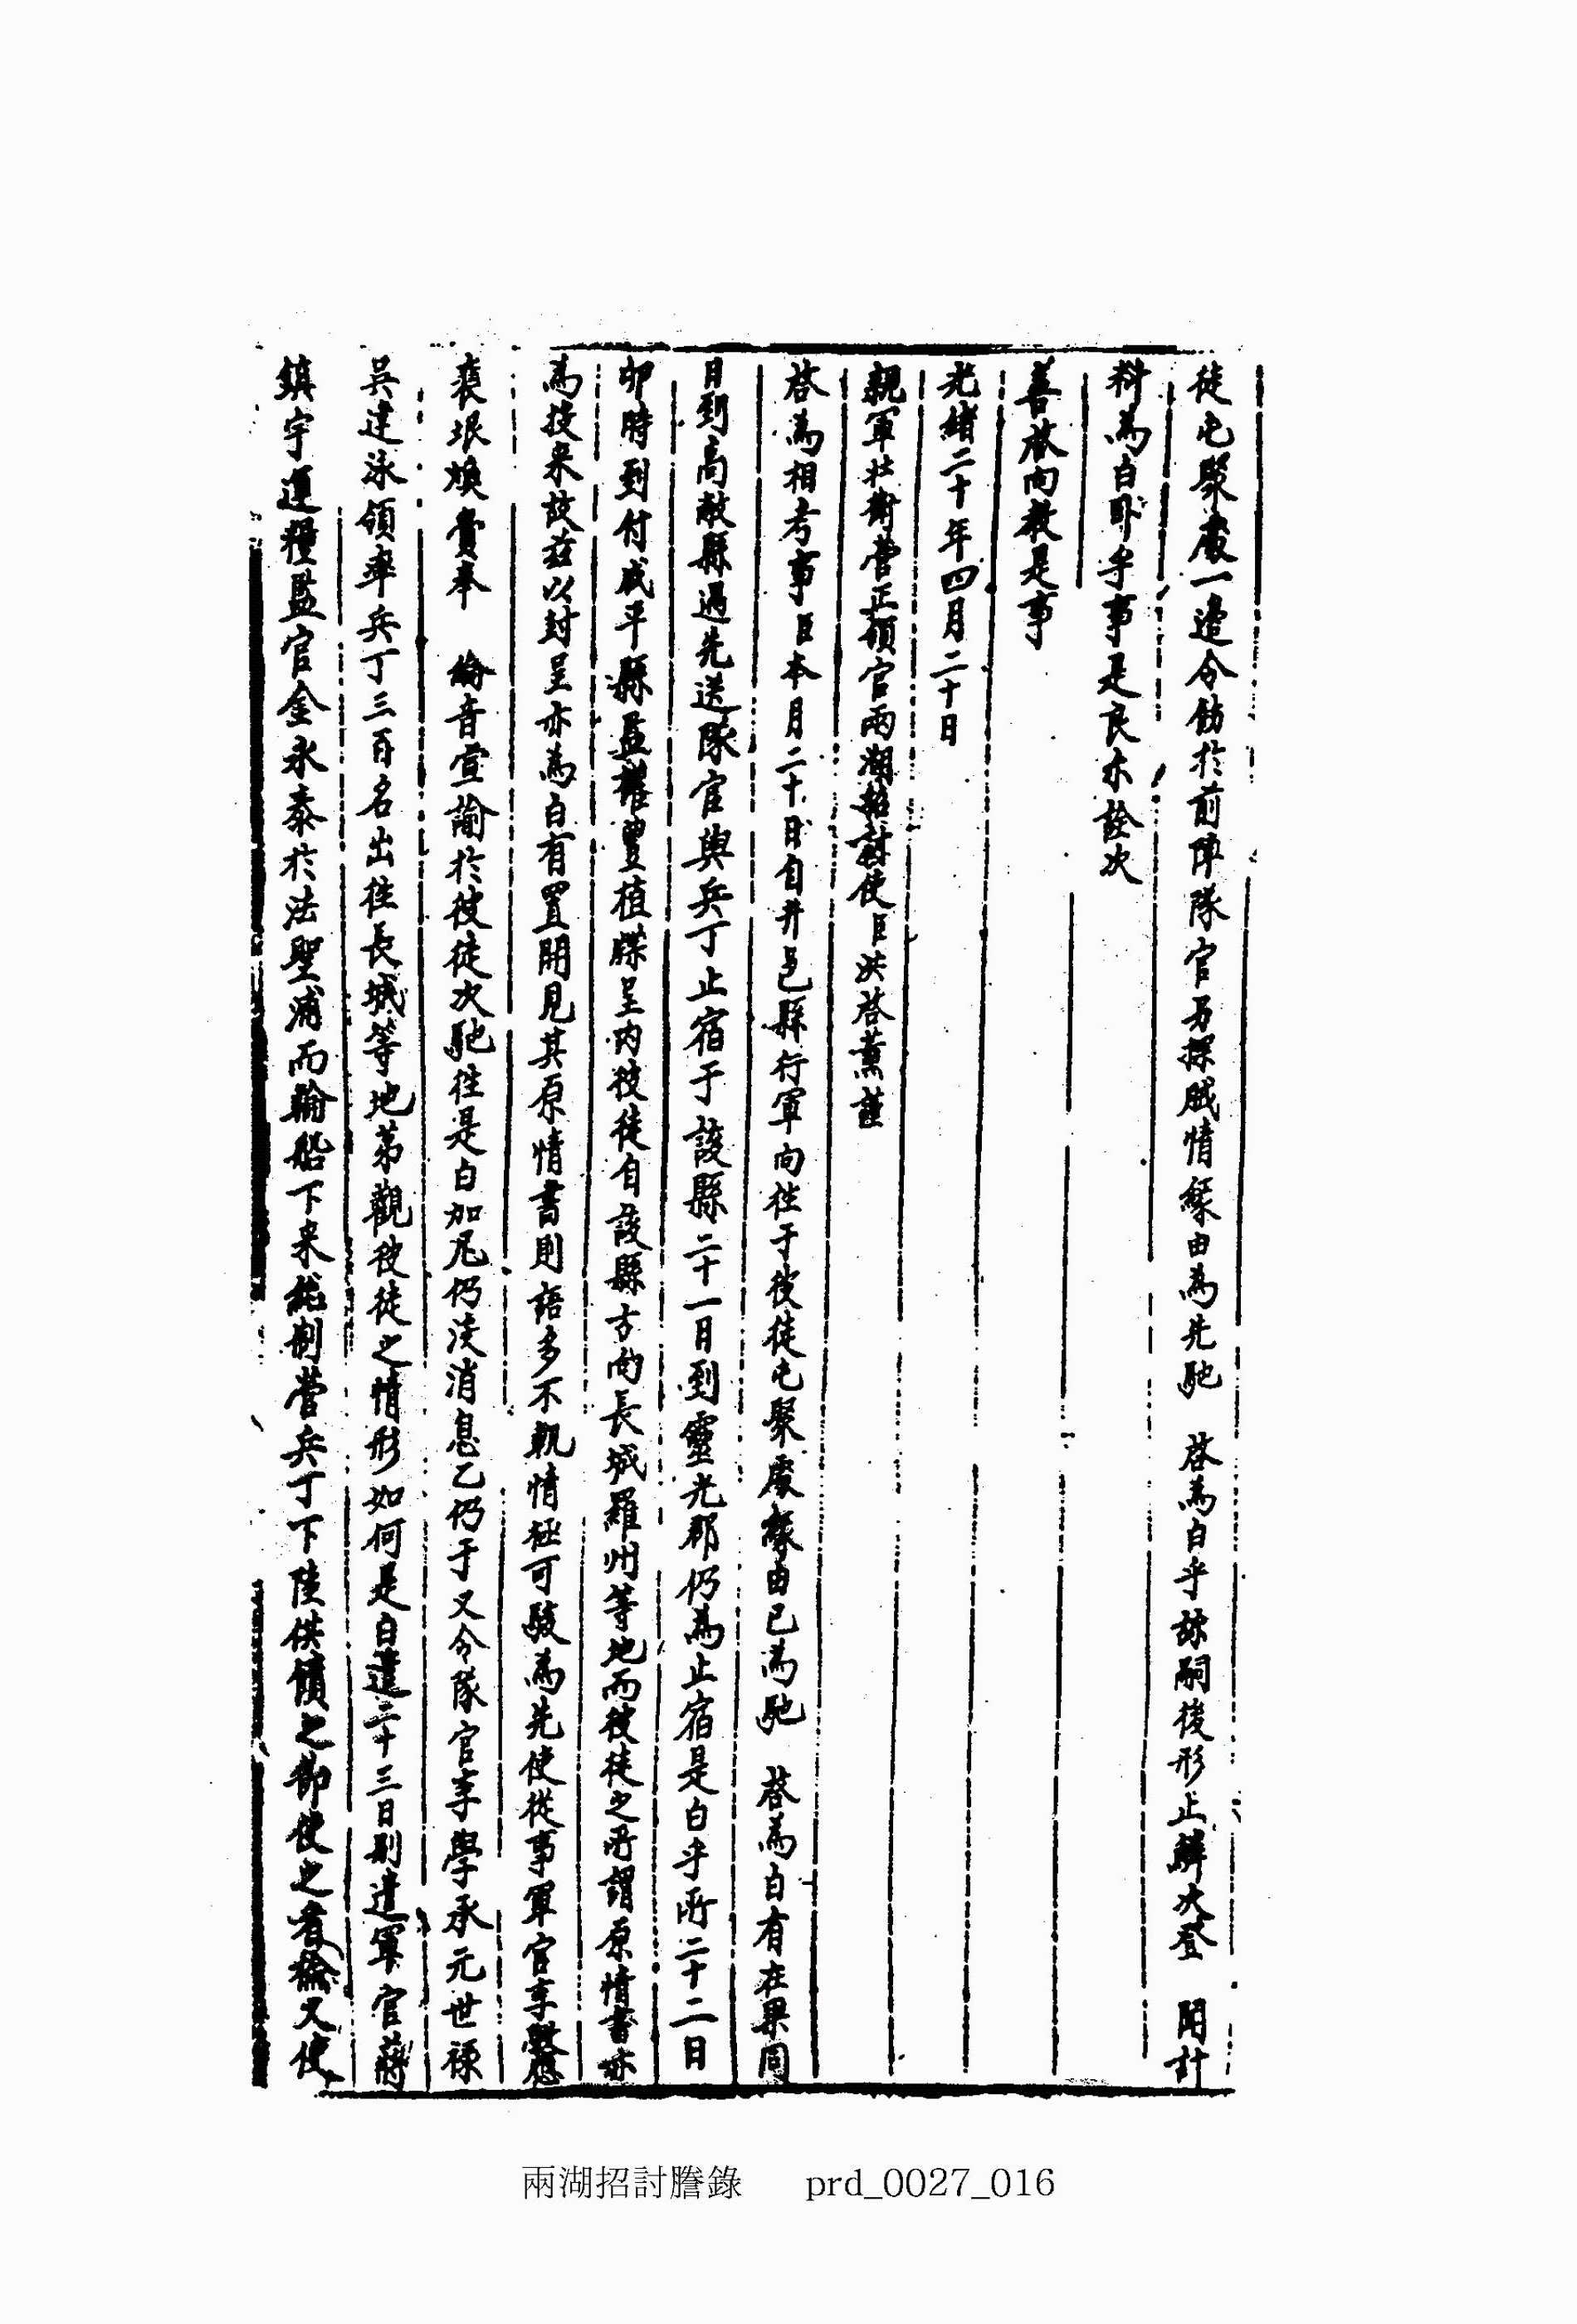 徒屯聚處一邊令飭於前陣隊官另探賊情緣由爲先馳 啓爲白乎㫆嗣後形止觧次登 聞計
料爲白臥乎事是良尒詮次
善啓向敎是事
光緖二十年四月二十日
親軍壯衛營正領官兩湖招討使臣洪啓薰謹
啓爲相考事臣本月二十日自井邑縣行軍向徃于彼徒屯聚處緣由已爲馳 啓爲白有在果同
日到高敞縣過先送隊官與兵丁止宿于該縣二十一日到靈光郡仍爲止宿是白乎所二十二日
卯時到付咸平縣監權豐植牒呈內彼徒自該縣方向長城羅州等地而彼徒之所謂原情書亦
爲投來故玆以封呈亦爲白有置開見其原情書則語多不軌情極可駭爲先使從事軍官李斅應
裵垠煥賷奉 綸音宣諭於彼徒次馳徃是白加尼仍淩消息乙仍于又令隊官李學承元世祿
吳建泳領率兵丁三百名出徃長城等地第觀彼徒之情形如何是白遣二十三日則送軍官蔣
鎭宇運糧監官金永泰於法聖浦而輪船下來總制營兵丁下陸供饋之節使之看檢又使
兩湖招討謄錄 prd_0027_016